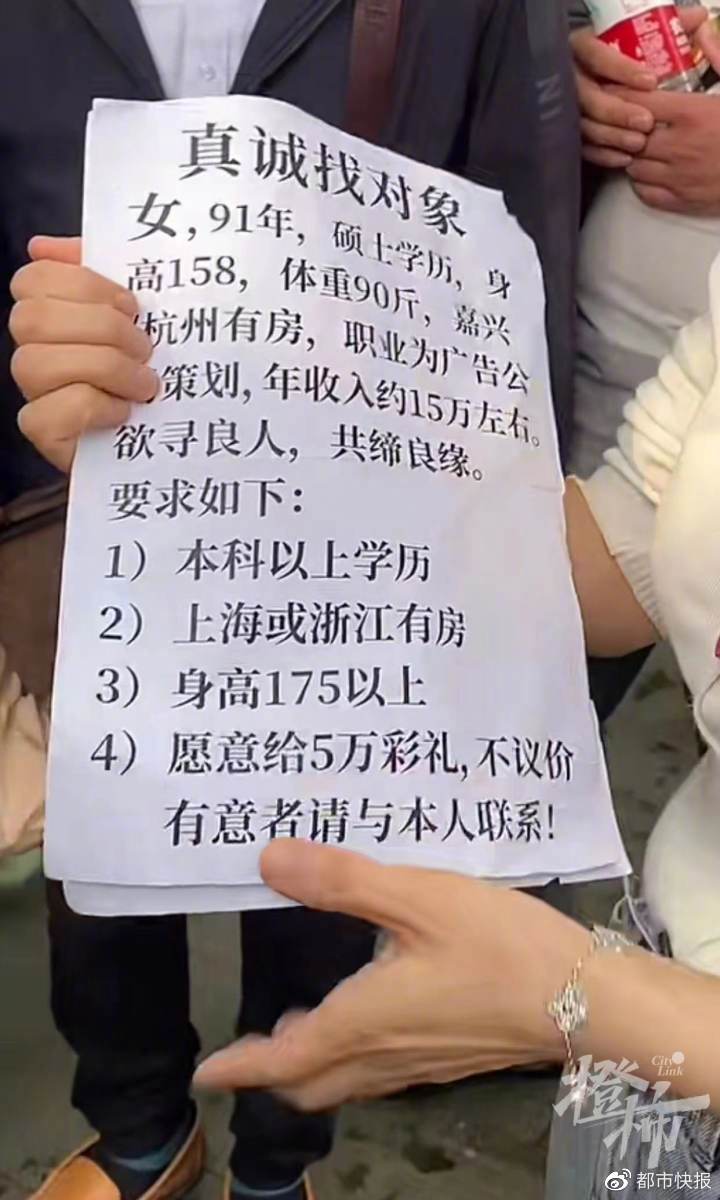 真诚找对象
女，91年，硕士学历，身
高158，体重90斤，嘉兴
杭州有房，职业为广告公
策划，年收入约15万左右。
欲寻良人，共缔良缘。
要求如下：
1）本科以上学历
2）上海或浙江有房
3）身高175以上
4）愿意给5万彩礼，不议价
有意者请与本人联系！
City Link
橙柿
都市快报